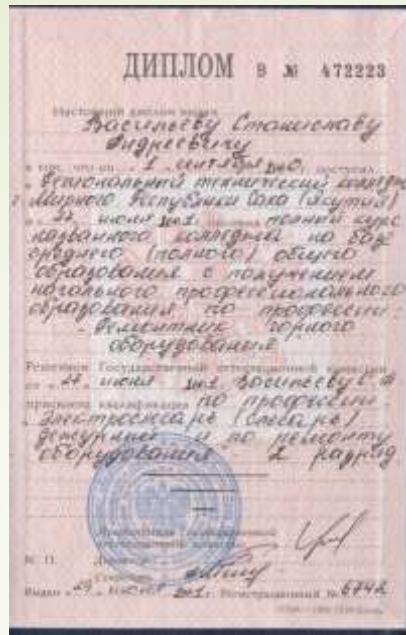 ДИПЛОМ В № 472223
Настоящий диплом выдан
Васильеву Станиславу
Андреевичу
в том, что он 1 сентября поступил
Региональный технический колледж
г. Мирного Республики Саха (Якутия)
и 27 июня полный курс
названного колледжа на базе
среднего (полного) общего
образования с получением
начального профессионального
образования по профессии:
Ремонтник горного
оборудования
Решением Государственной аттестационной комиссии
от 27 июня Васильеву С.А.
присвоена квалификация по профессии
Электрослесарь (слесарь)
дежурный и по ремонту
оборудования 2 разряд
М. П. Директор
Секретарь
Выдан 29 июня г. Регистрационный № 6742